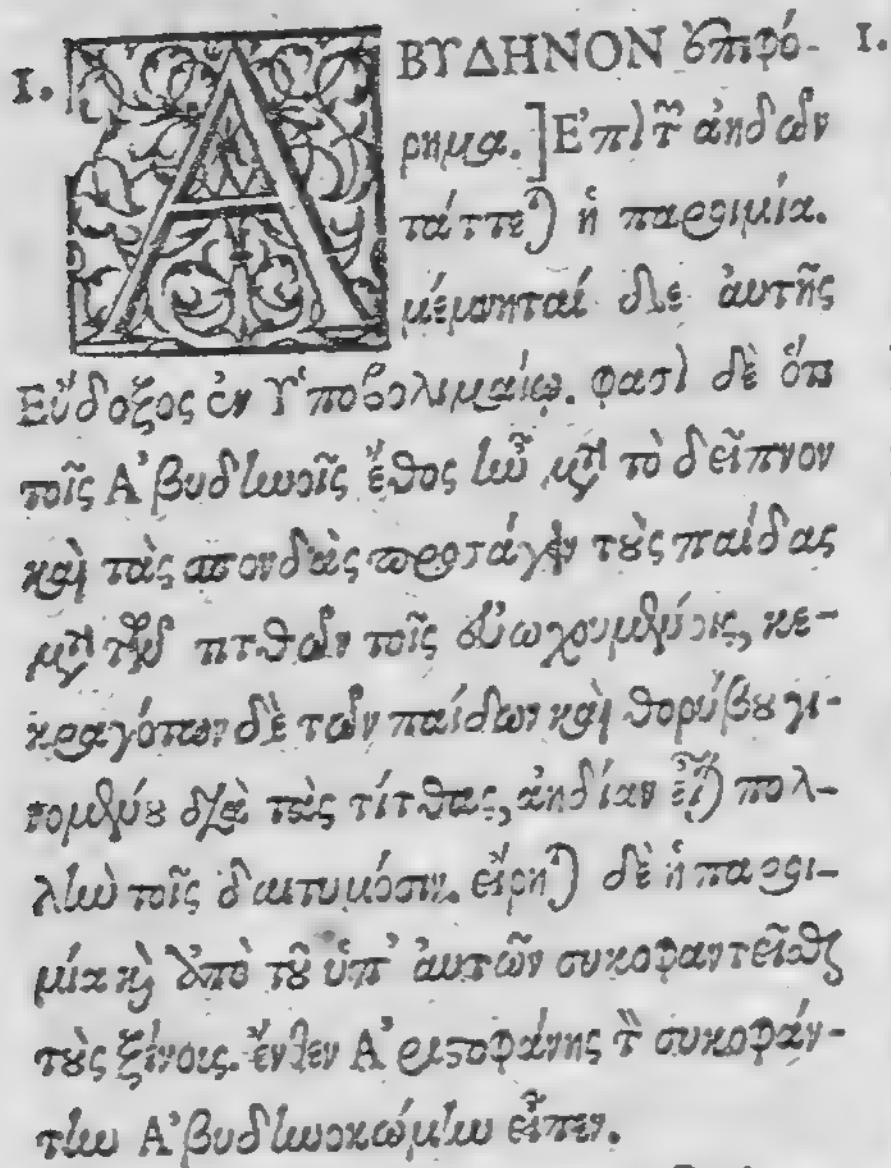 1. ΑΒΥΔΗΝΟΝ ἐπιφό- 1.
ρημα.] Ἐπὶ τῶν ἀηδῶν
τάττεται ἡ παροιμία.
μέμνηται δὲ αὐτῆς
Εὔδοξος ἐν Ὑποβολιμαίῳ. φασὶ δὲ ὅτι
τοῖς Ἀβυδηνοῖς ἔθος ἦν μετὰ τὸ δεῖπνον
καὶ τὰς σπονδὰς προσάγειν τοὺς παῖδας
μετὰ τῶν τιτθῶν τοῖς εὐωχουμένοις, κε-
κραγότων δὲ τῶν παίδων καὶ θορύβου γι-
νομένου διὰ τὰς τίτθας, ἀηδίαν εἶναι πολ-
λὴν τοῖς δαιτυμόσιν. εἴρηται δὲ ἡ παροι-
μία καὶ ἀπὸ τοῦ ὑπ' αὐτῶν συκοφαντεῖσθαι
τοὺς ξένους. ἔνθεν Ἀριστοφάνης τὸν συκοφάν-
την Ἀβυδηνοκώμην εἶπεν.